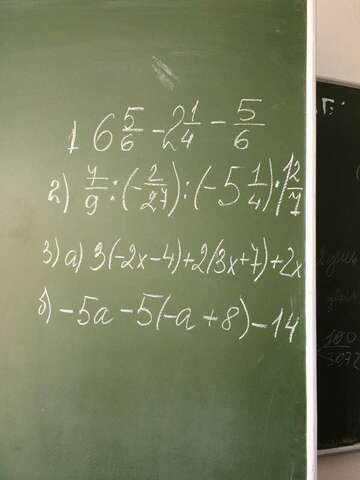 1 6 5/6 - 2 1/4 - 5/6
2) 7/9 : (- 2/27) : (-5 1/4) · 1 2/7
3) а) 3(-2x-4)+2(3x+7)+2x
б) -5a-5(-a+8)-14